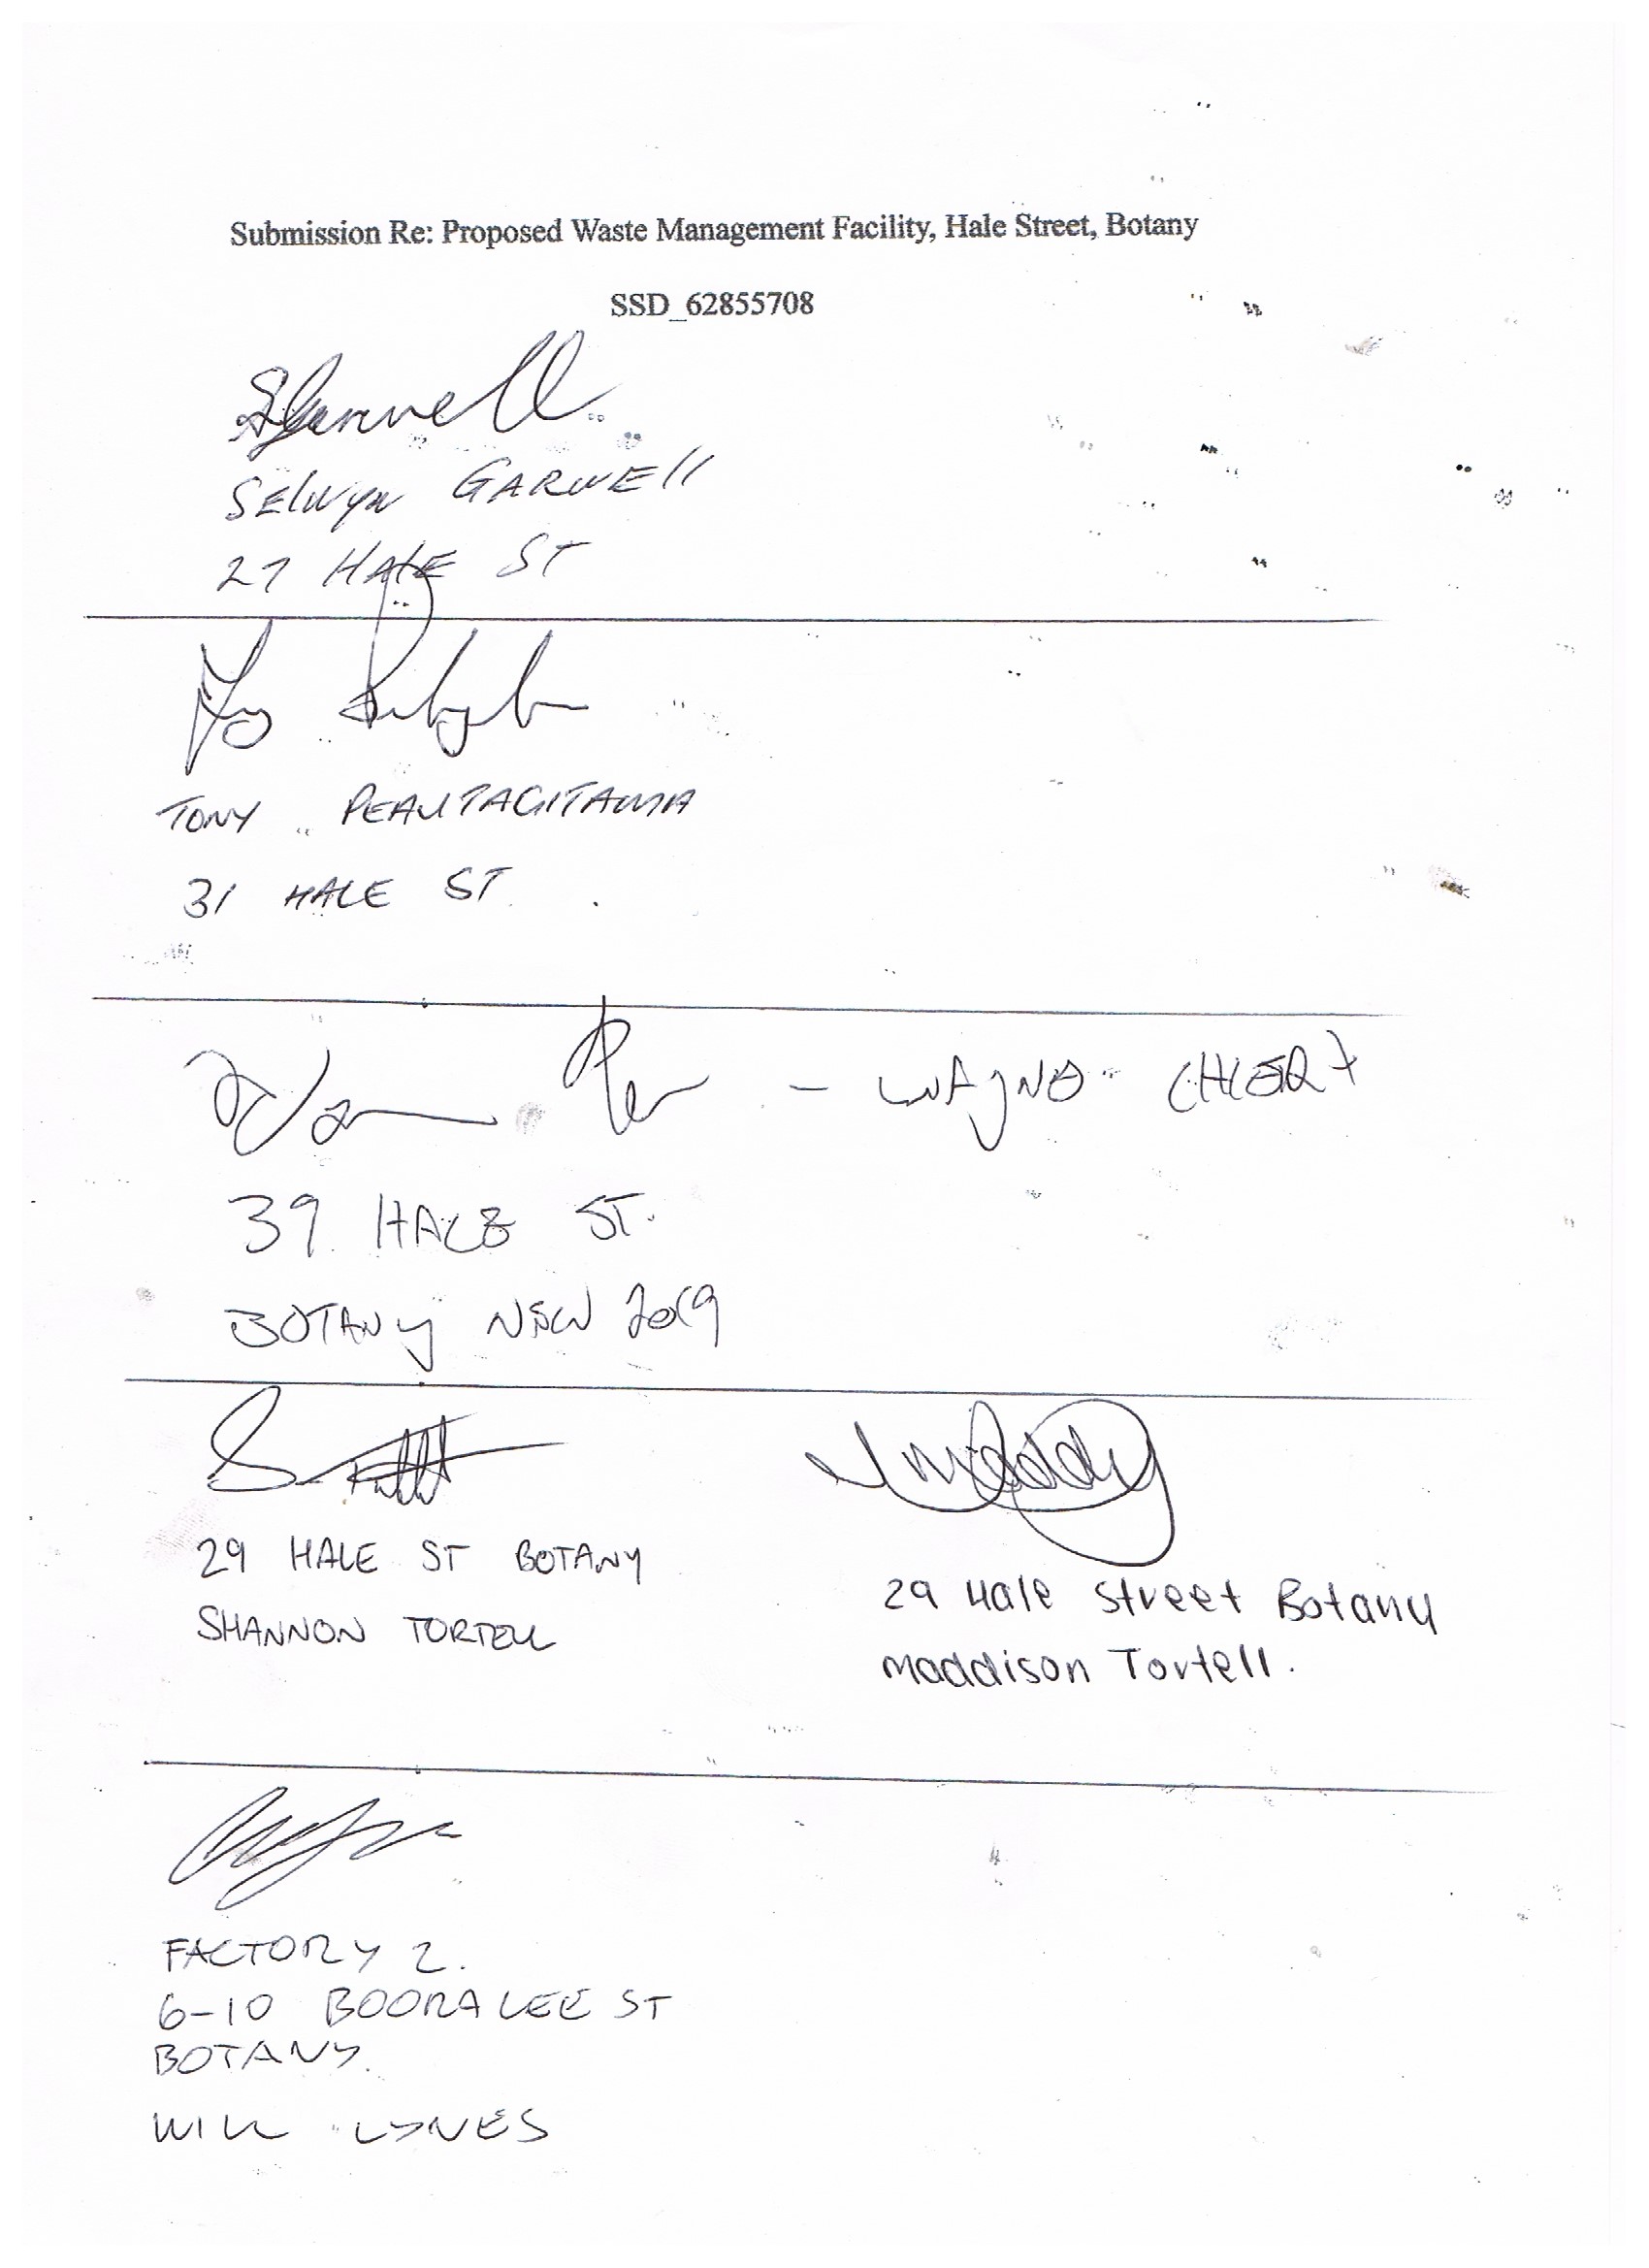 Submission Re: Proposed Waste Management Facility, Hale Street, Botany
SSD_62855708
SElwyn GARWEll
27 HAlE ST
TONY
31 HALE ST.
- WAyNE
39 HALE ST.
BOTANy NSW 2019
29 HALE ST BOTANY
SHANNON TORTELL
29 Hale Street Botany
Maddison Tortell.
FACTORY 2.
6-10 BOORALEE ST
BOTANY.
WILL LYNES